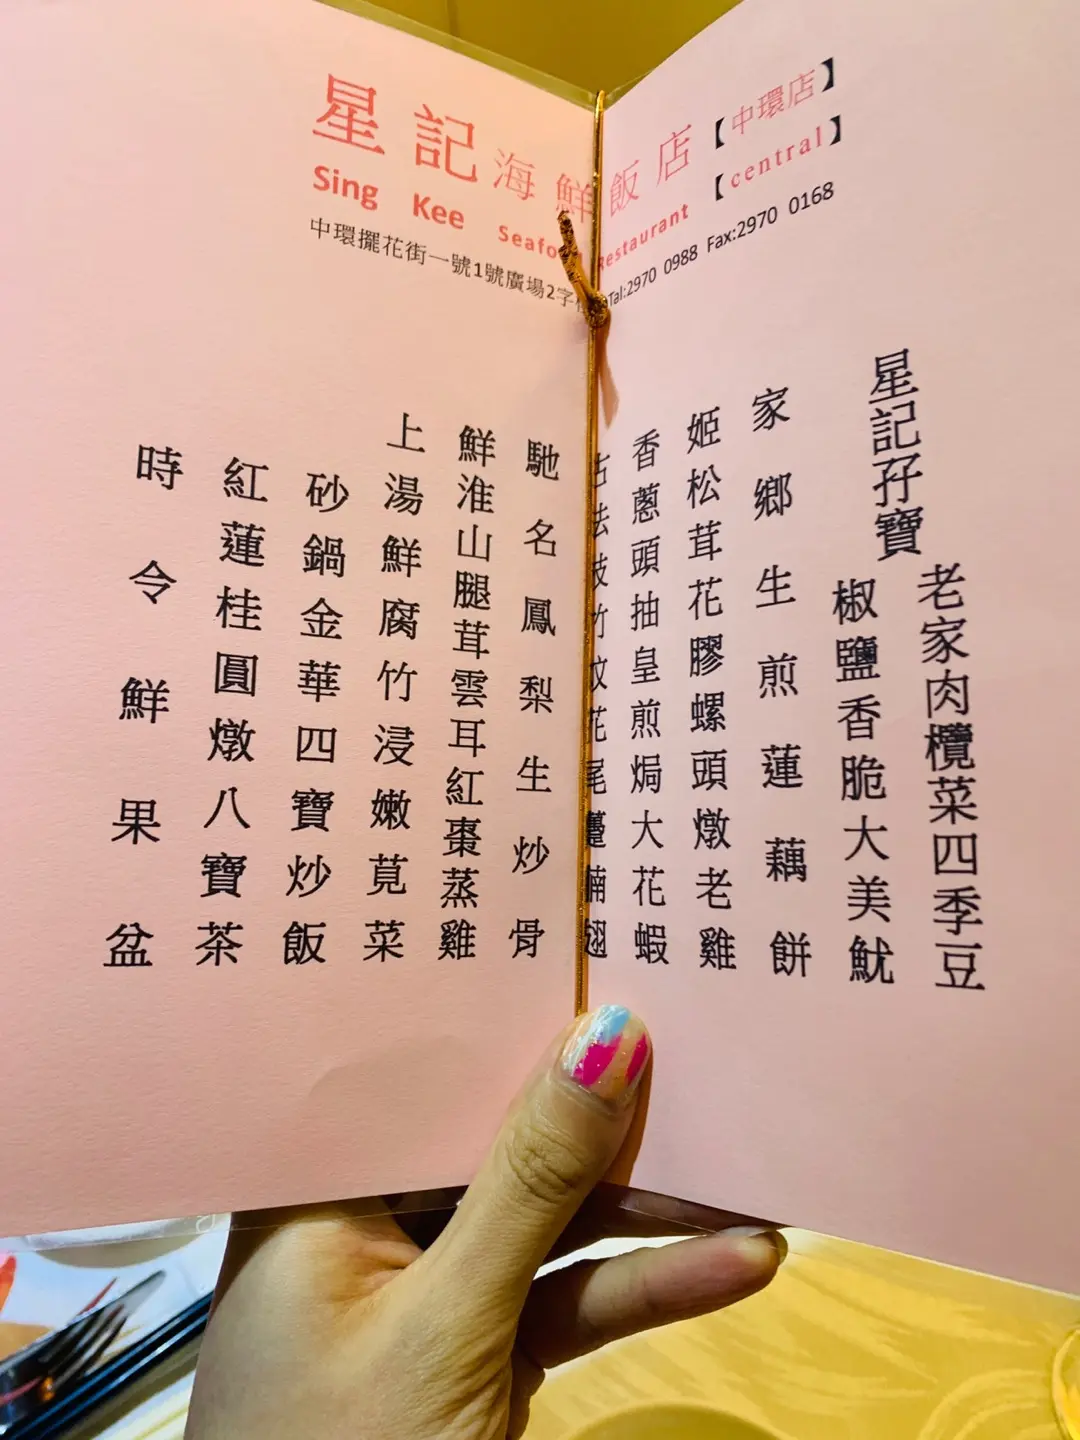 星記海鮮飯店【中環店】
Sing Kee Seafood Restaurant【central】
中環擺花街一號1號廣場2字樓 Tal:2970 0988 Fax:2970 0168
星記孖寶
老家肉欖菜四季豆
椒鹽香脆大美魷
家鄉生煎蓮藕餅
姬松茸花膠螺頭燉老雞
香蔥頭抽皇煎焗大花蝦
古法枝竹炆花尾躉腩翅
馳名鳳梨生炒骨
鮮淮山腿茸雲耳紅棗蒸雞
上湯鮮腐竹浸嫩莧菜
砂鍋金華四寶炒飯
紅蓮桂圓燉八寶茶
時令鮮果盆